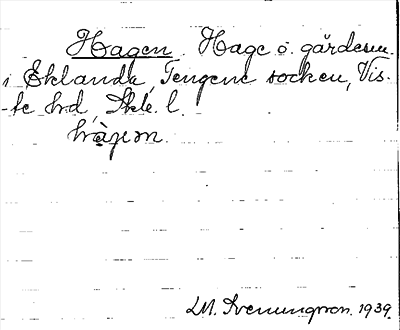 Hagen. Hage o. gärdesm.
i Eklanda, Tengene socken, Vis-
-te hrd, Skb. l.
hàgen.
LM. Svenungsson. 1939.